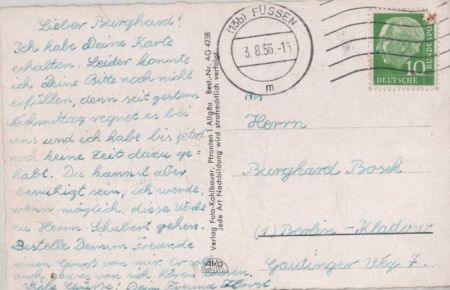 Lieber Burghard!
Ich habe Deine Karte
erhalten. Leider konnte
ich Deine Bitte noch nicht
erfüllen, denn seit gestern
Nachmittag regnet es bei
uns und ich habe bis jetzt
noch keine Zeit dazu ge-
habt. Du kannst aber
beruhigt sein, ich werde,
wenn möglich, diese Woche
zu Herrn Schubert gehen.
Bestelle Deinem Freunde
einen Gruß von mir. Er soll
auch etwas von ich hören
Viele Grüße! Dein Freund Horst
Verlag Foto-Kohlbauer, Pfronten i Allgäu Best.-Nr. AG 4238
Jede Art Nachbildung wird strafrechtlich verfolgt
(13b) FÜSSEN
3.8.56.-13
m
10
DEUTSCHE
BUNDESPOST
An
Herrn
Burghard Bosek
(1) Berlin-Kladow
Gautinger Weg 7.